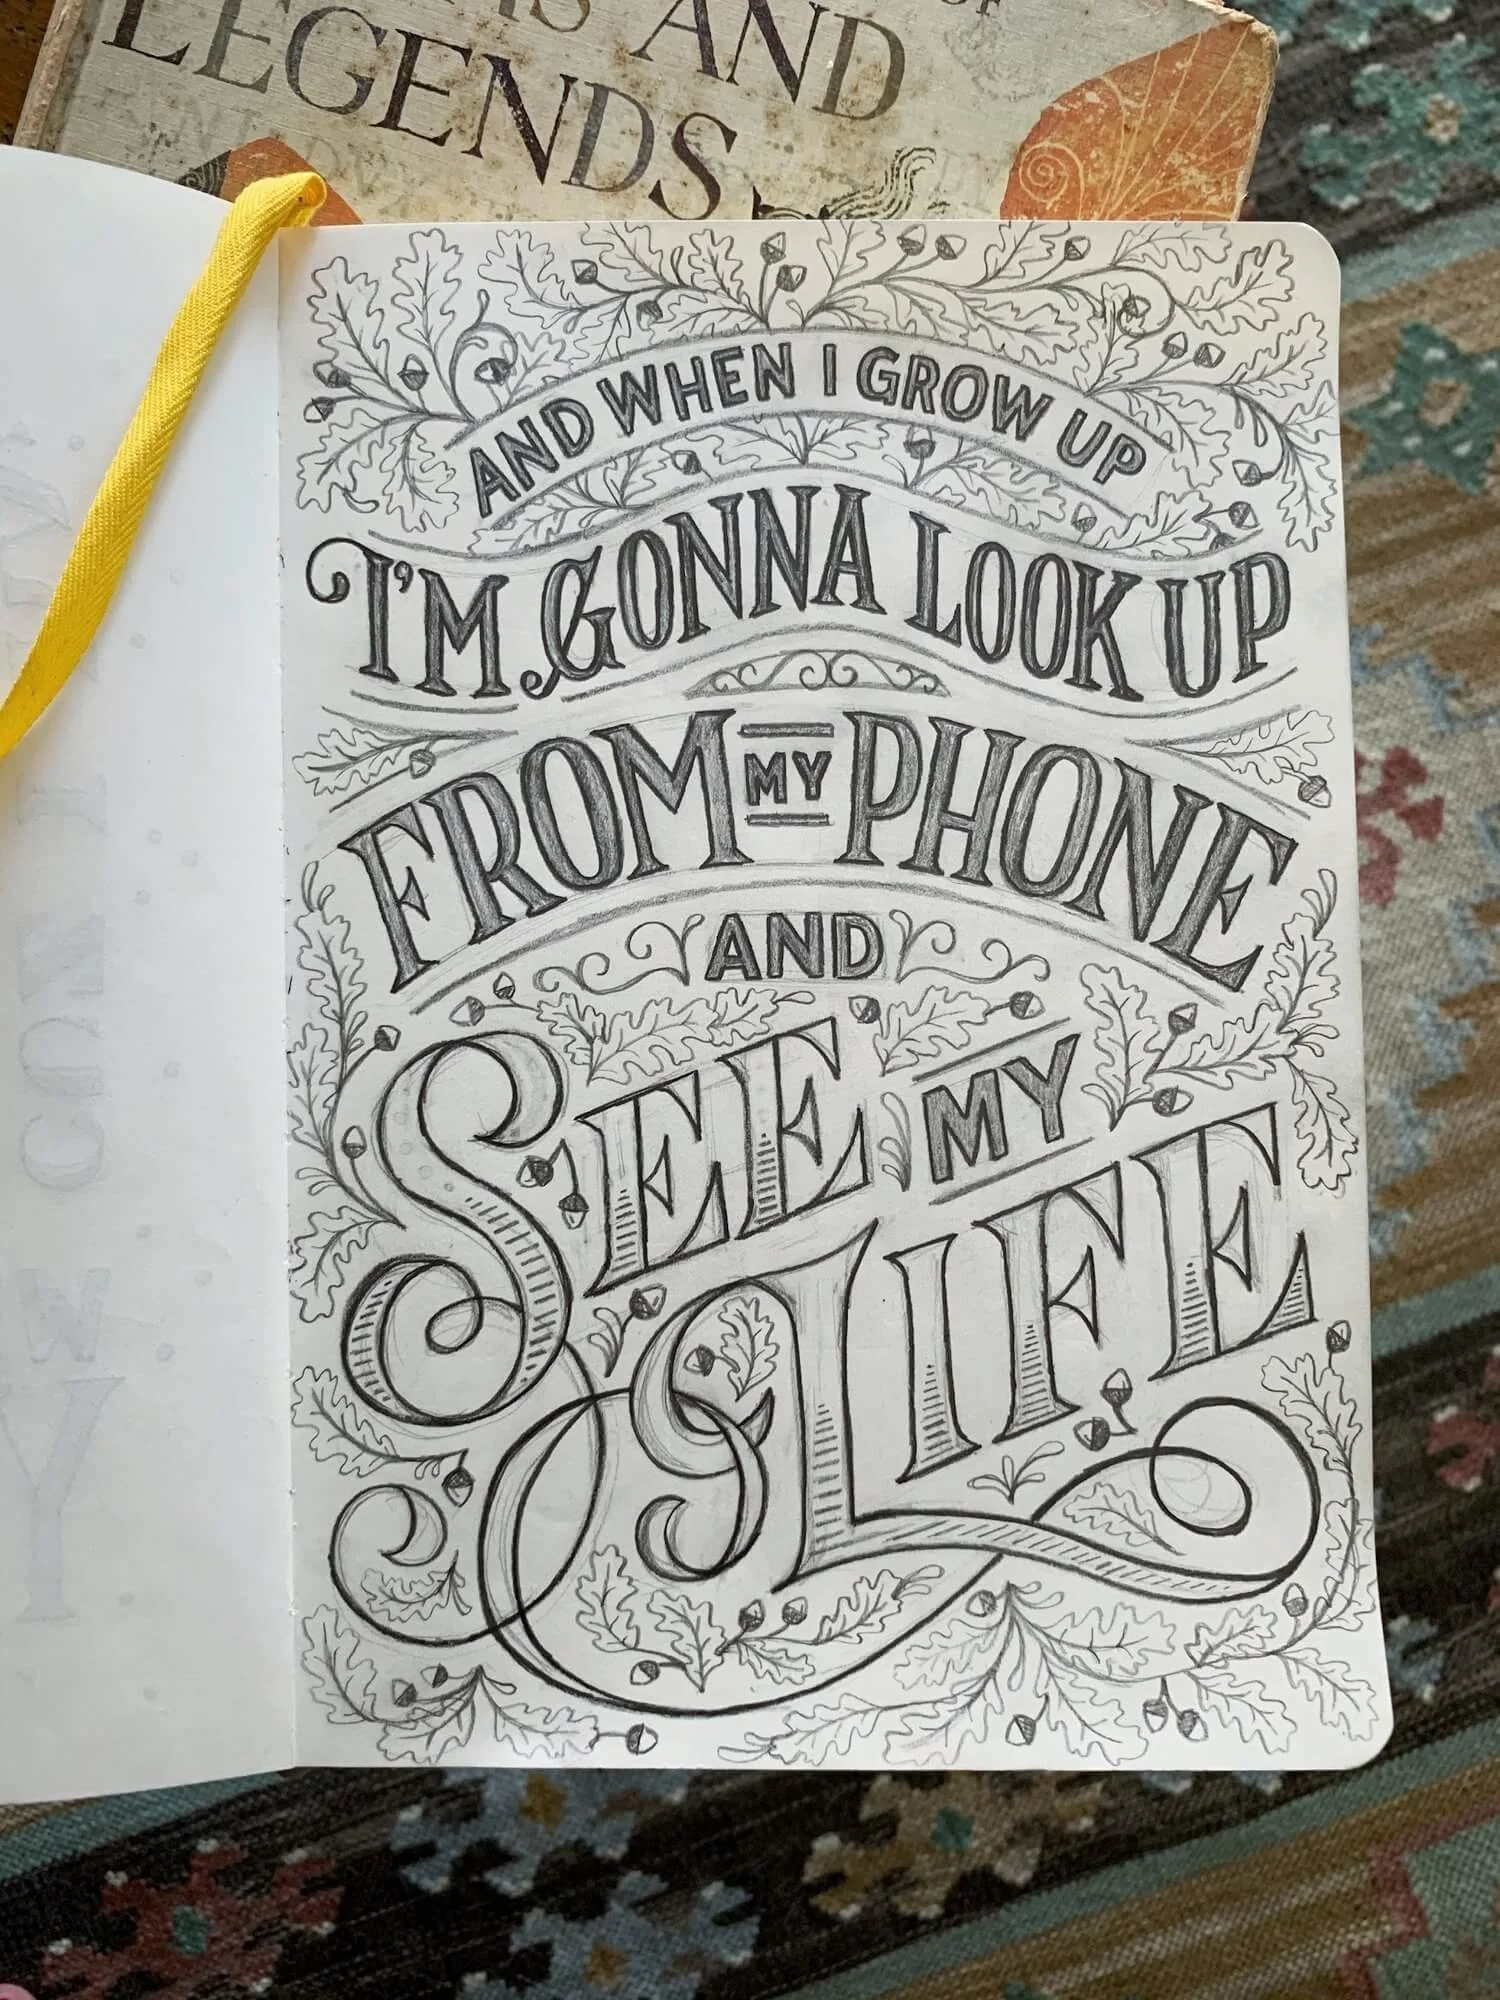 AND
LEGENDS
AND WHEN I GROW UP
I'M GONNA LOOK UP
FROM MY PHONE
AND
SEE MY
LIFE